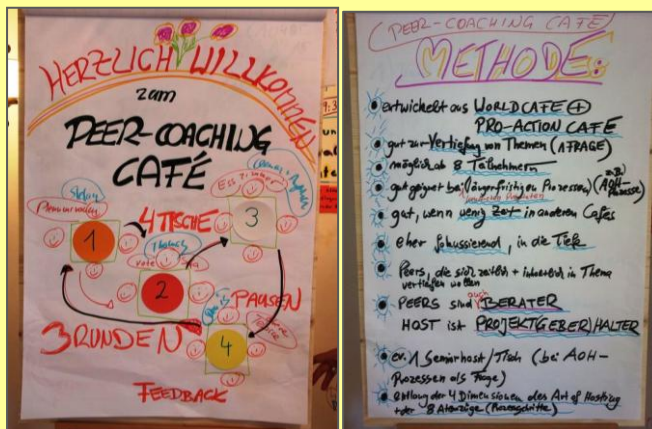 HERZLICH WILLKOMMEN
zum
PEER-COACHING
CAFÉ
Esszimmer
4 TISCHE
1
3
2
PAUSEN
4
3 RUNDEN
FEEDBACK
PEER-COACHING CAFÉ
METHODE:
entwickelt aus WORLDCAFE +
PRO-ACTION CAFE
gut zur Vertiefung von Themen (1 FRAGE)
möglich ab 8 Teilnehmern
gut geignet bei längerfristigen Prozessen
gut, wenn wenig Zeit in anderen Cafes
eher fokussierend, in die Tiefe
Peers, die sich zeitlich + inhaltlich in Thema
vertiefen wollen
PEERS sind auch BERATER
HOST ist PROJEKTGEBER/HALTER
ev. 1 Seniorhost/Tisch (bei AOH-
Prozessen als Frage)
entlang der 4 Dimensionen des Art of Hosting
+ der 8 Atemzüge (Prozessschritte)